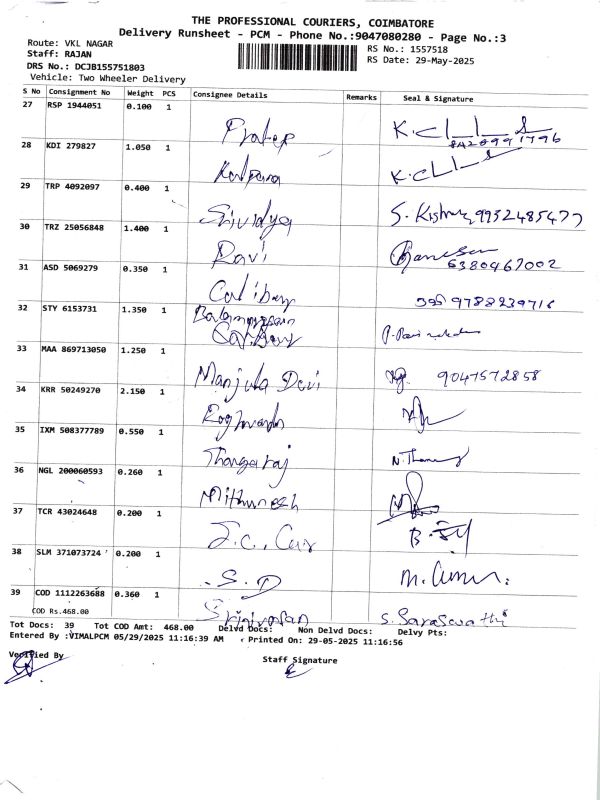 THE PROFESSIONAL COURIERS, COIMBATORE
Delivery Runsheet - PCM - Phone No.:9047080280 - Page No.:3
Route: VKL NAGAR
RS No.: 1557518
Staff: RAJAN
RS Date: 29-May-2025
DRS No.: DCJB155751803
Vehicle: Two Wheeler Delivery
S No Consignment No Weight PCS Consignee Details Remarks Seal & Signature
27 RSP 1944051 0.100 1
28 KDI 279827 1.050 1 Kalpana
29 TRP 4092097 0.400 1 Srividya S. Kishur, 9952485477
30 TRZ 25056848 1.400 1 Ravi Ganesan 6380467002
31 ASD 5069279 0.350 1 9788239716
32 STY 6153731 1.350 1
33 MAA 869713050 1.250 1 Manjula Devi 9047572858
34 KRR 50249270 2.150 1
35 IXM 508377789 0.550 1 Thangaraj
36 NGL 200060593 0.260 1 Mithunesh
37 TCR 43024648 0.200 1
38 SLM 371073724 0.200 1 S.D
39 COD 1112263688 0.360 1 Srinivasan S. Saraswathi
COD Rs.468.00
Tot Docs: 39 Tot COD Amt: 468.00 Delvd Docs: Non Delvd Docs: Delvy Pts:
Entered By :VIMALPCM 05/29/2025 11:16:39 AM Printed On: 29-05-2025 11:16:56
Verified By
Staff Signature